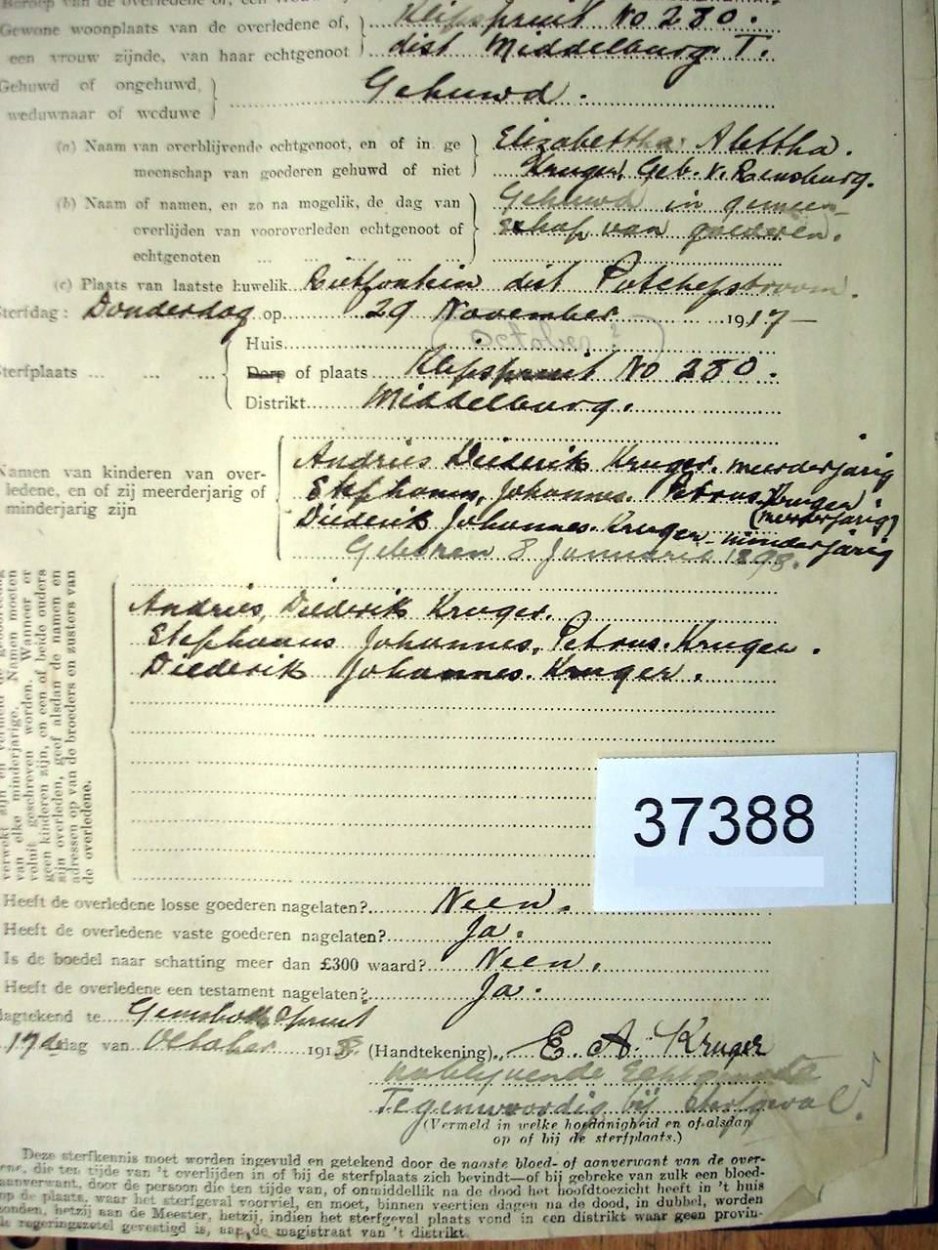 Beroep van de overledene of, een vrouw
Gewone woonplaats van de overledene of, Klipspruit No 280.
een vrouw zijnde, van haar echtgenoot dist Middelburg T.
Gehuwd of ongehuwd, Gehuwd.
weduwnaar of weduwe
(a) Naam van overblijvende echtgenoot, en of in ge Elizabettha Alettha.
meenschap van goederen gehuwd of niet Kruger, Geb. v. Rensburg.
(b) Naam of namen, en zo na mogelik, de dag van Gehuwd in gemeen-
overlijden van vooroverleden echtgenoot of schap van goederen.
echtgenoten ... ... ... ...
(c) Plaats van laatste huwelik Rietfontein dist Potchefstroom.
Sterfdag: Donderdag op 29 November 1917-
Huis
Sterfplaats ... ... ... Dorp of plaats Klipspruit No 280.
Distrikt Middelburg.
Namen van kinderen van over- Andries Diederik Kruger. meerderjarig
ledene, en of zij meerderjarig of Stephanus, Johannes. Petrus Kruger
minderjarig zijn (meerderjarig)
Diederik Johannes. Kruger minderjarig
Geboren 8 Januarie 1898.
verwekt zijn en
van elke minderjarige. Namen moeten
voluit geschreven worden. Wanneer er
geen kinderen zijn, en een of beide ouders
zijn overleden, geef alsdan de namen en
adressen op van de broeders en zusters van
de overledene.
Andries, Diederik Kruger.
Stephanus Johannes, Petrus. Kruger.
Diederik Johannes. Kruger.
37388
Heeft de overledene losse goederen nagelaten? Neen.
Heeft de overledene vaste goederen nagelaten? Ja.
Is de boedel naar schatting meer dan £300 waard? Neen.
Heeft de overledene een testament nagelaten? Ja.
dagtekend te Spruit
17de dag van October 1918 (Handtekening) E. A. Kruger
nablijvende Echtgenoote
Tegenwoordig bij sterfgeval.
(Vermeld in welke hoedanigheid en of alsdan
op of bij de sterfplaats.)
Deze sterfkennis moet worden ingevuld en getekend door de naaste bloed- of aanverwant van de over-
ene, die ten tijde van 't overlijden in of bij de sterfplaats zich bevindt—of bij gebreke van zulk een bloed-
aanverwant, door de persoon die ten tijde van, of onmiddellik na de dood het hoofdtoezicht heeft in 't huis
op de plaats, waar het sterfgeval voorviel, en moet, binnen veertien dagen na de dood, in dubbel, worden
zonden, hetzij aan de Meester, hetzij, indien het sterfgeval plaats vond in een distrikt waar geen provin-
le regeringszetel gevestigd is, aan de magistraat van 't distrikt.